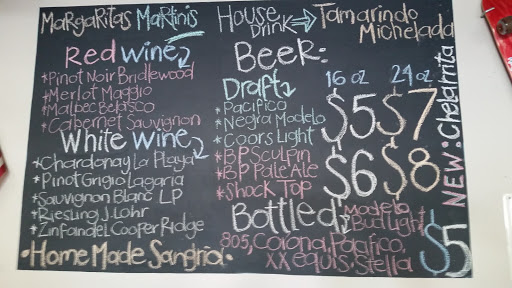 Margaritas Martinis
Red Wine
*Pinot Noir Bridlewood
*Merlot Maggio
*Malbec Belasco
*Cabernet Sauvignon
White Wine
*Chardonay La Playa
*Pinot Grigio Lagaria
*Sauvignon Blanc LP
*Riesling J. Lohr
*Zinfandel Cooper Ridge
•Home Made Sangria•
House Drink → Tamarindo Michelada
Beer:
Draft 16 oz 24 oz
*Pacifico
*Negra Modelo
*Coors Light
$5 $7
*BP Sculpin
*BP Pale Ale
*Shock Top
$6 $8
Bottled Modelo
Bud Light
805, Corona, Pacifico,
XX equis, Stella
$5
NEW: Chelarrita